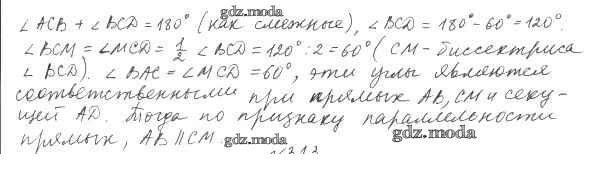 gdz.moda
∠ACB + ∠BCD = 180° (как смежные), ∠BCD = 180° - 60° = 120°.
∠BCM = ∠MCD = 1/2 ∠BCD = 120° : 2 = 60° (CM - биссектриса
∠BCD). ∠BAC = ∠MCD = 60°, эти углы являются
соответственными при прямых AB, CM и секу-
щей AD. Тогда по признаку параллельности
прямых, AB ∥ CM.
gdz.moda
gdz.moda